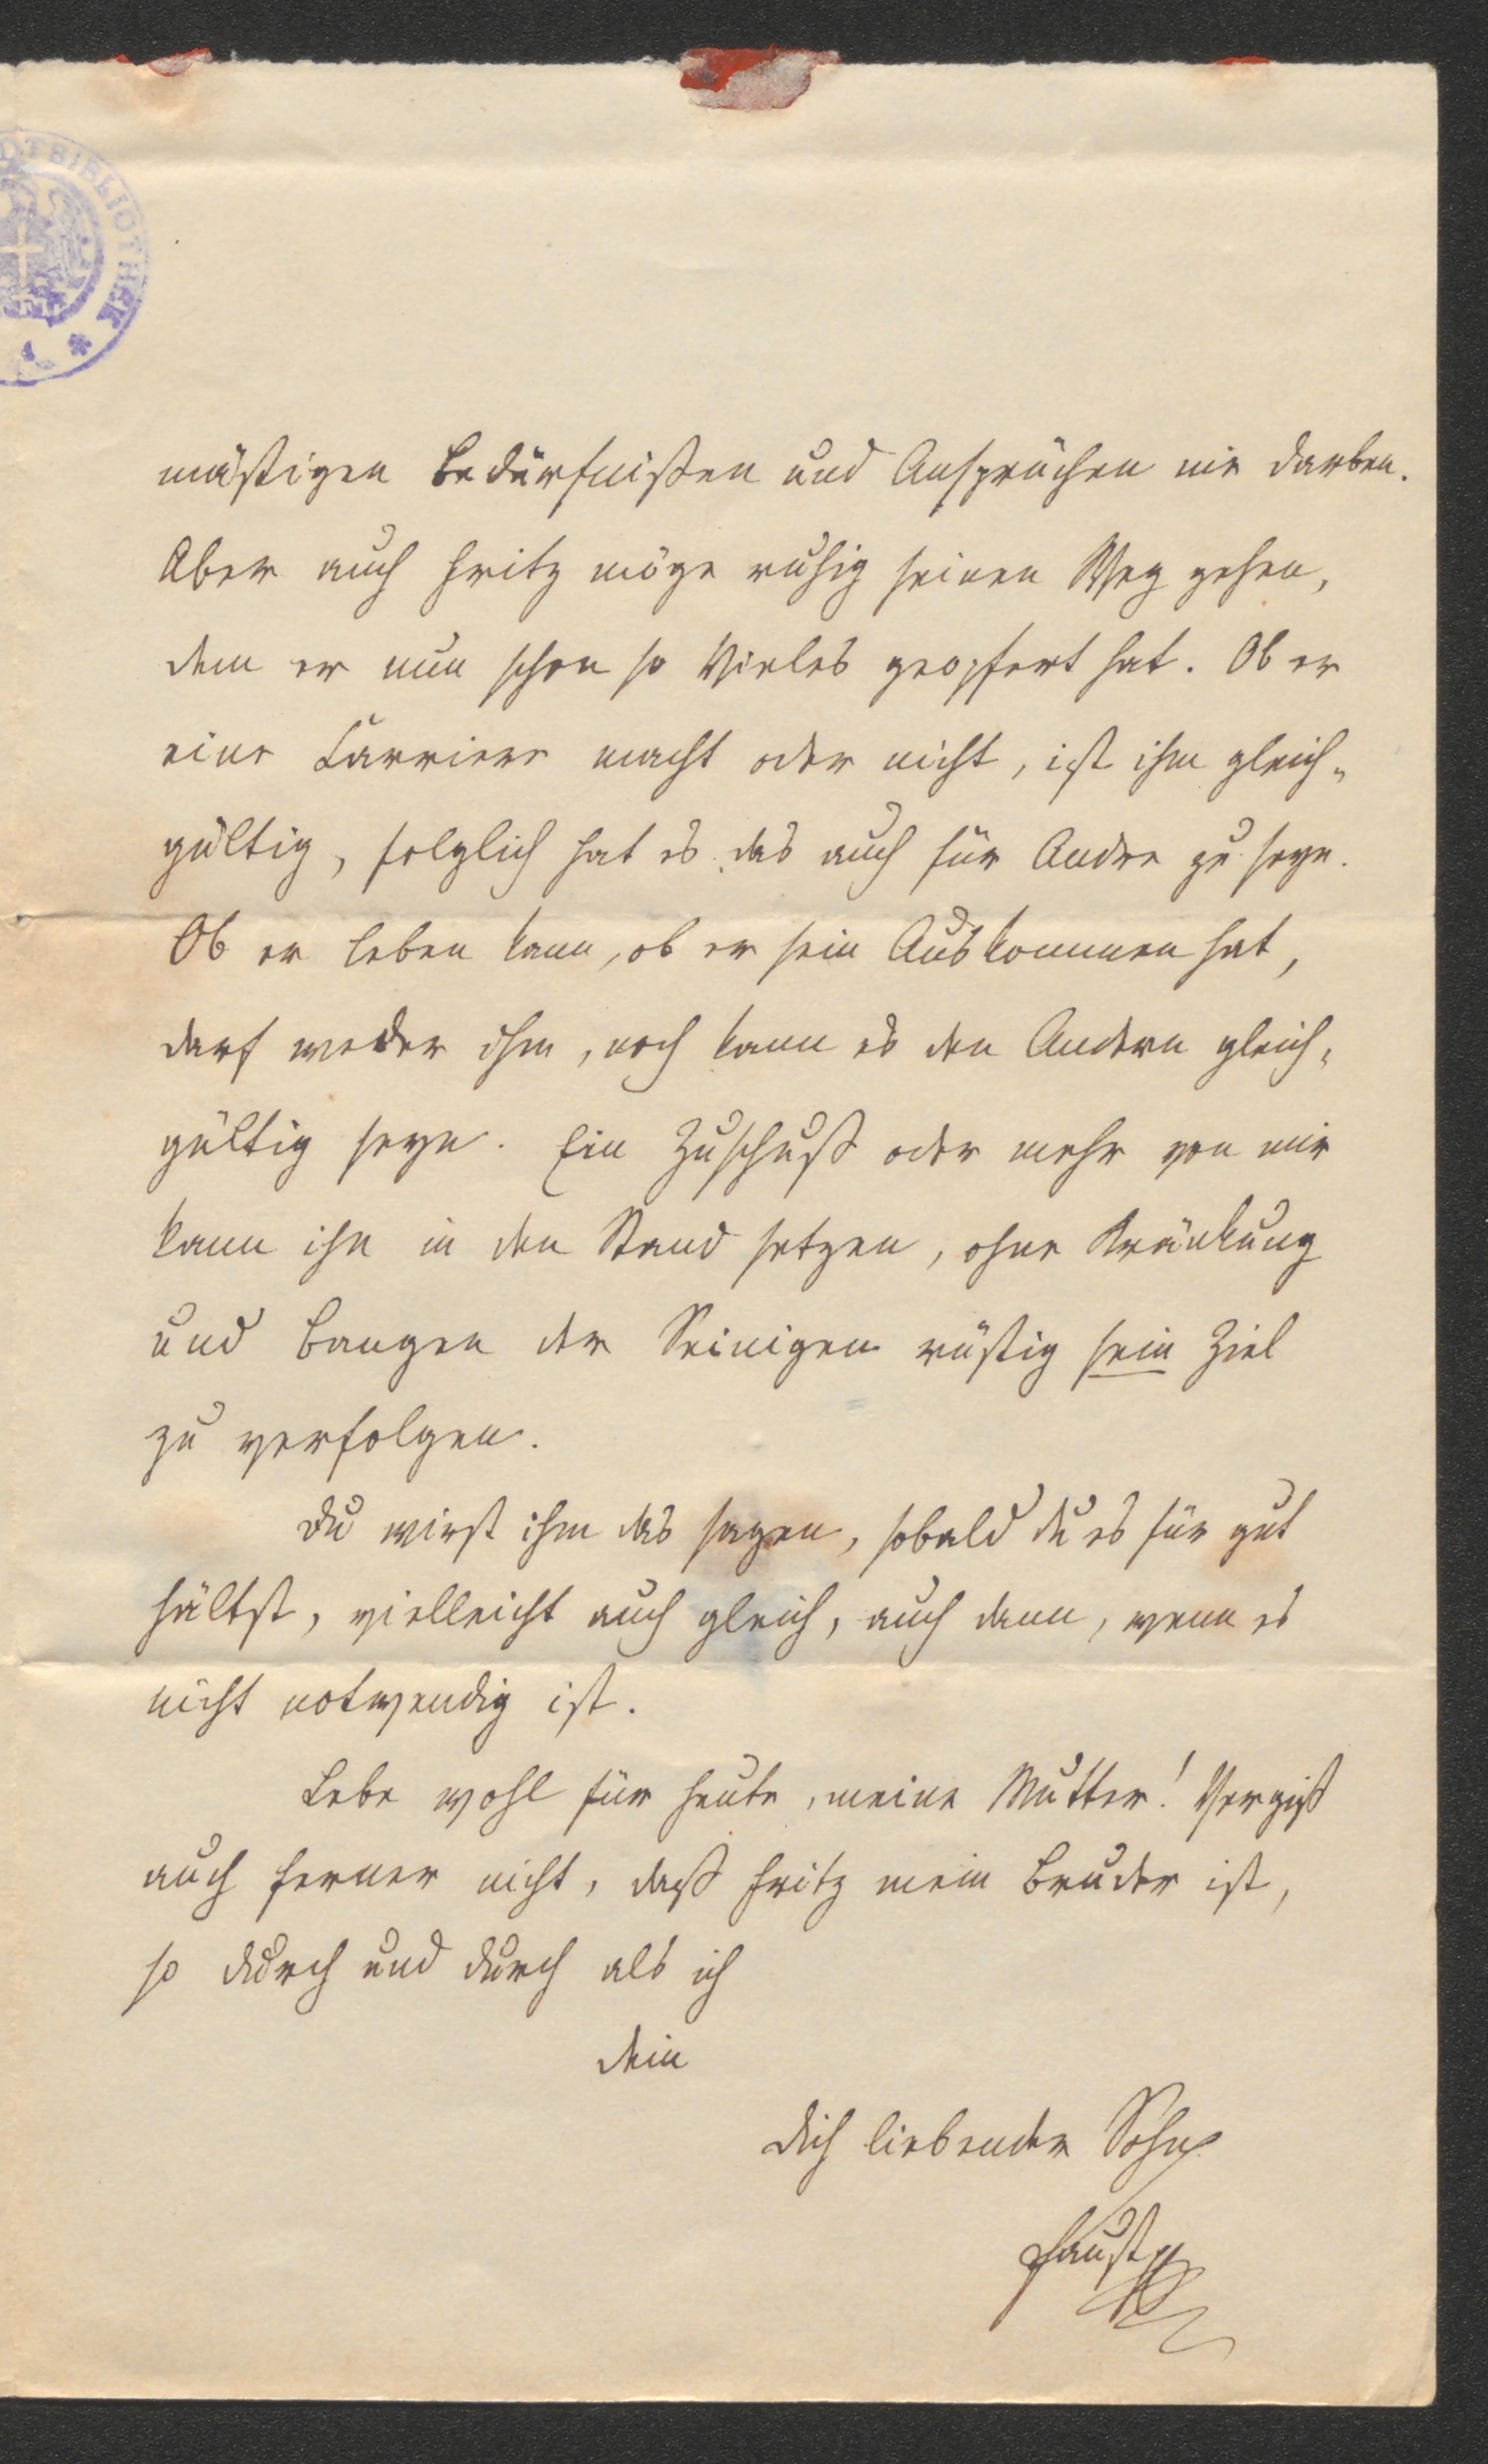 DTBIBLIOTHEK
mäßigen Bedürfnißen und Ansprüchen nie darben.
Aber auch Fritz möge ruhig seinen Weg gehen,
dem er nun schon so Vieles geopfert hat. Ob er
eine Carriere macht oder nicht, ist ihm gleich„
gültig, folglich hat es das auch für Andre zu seyn.
Ob er leben kann, ob er sein Auskommen hat,
darf weder ihm, noch kann es den Andern gleich„
gültig seyn. Ein Zuschuß oder mehr von mir
kann ihn in den Stand setzen, ohne Kränkung
und Bangen der Seinigen rüstig sein Ziel
zu verfolgen.
Du wirst ihm das sagen, sobald du es für gut
hältst, vielleicht auch gleich, auch dann, wenn es
nicht notwendig ist.
Lebe wohl für heute, meine Mutter! Vergiß
auch ferner nicht, daß Fritz mein Bruder ist,
so durch und durch als ich
dein
dich liebender Sohn
Faust